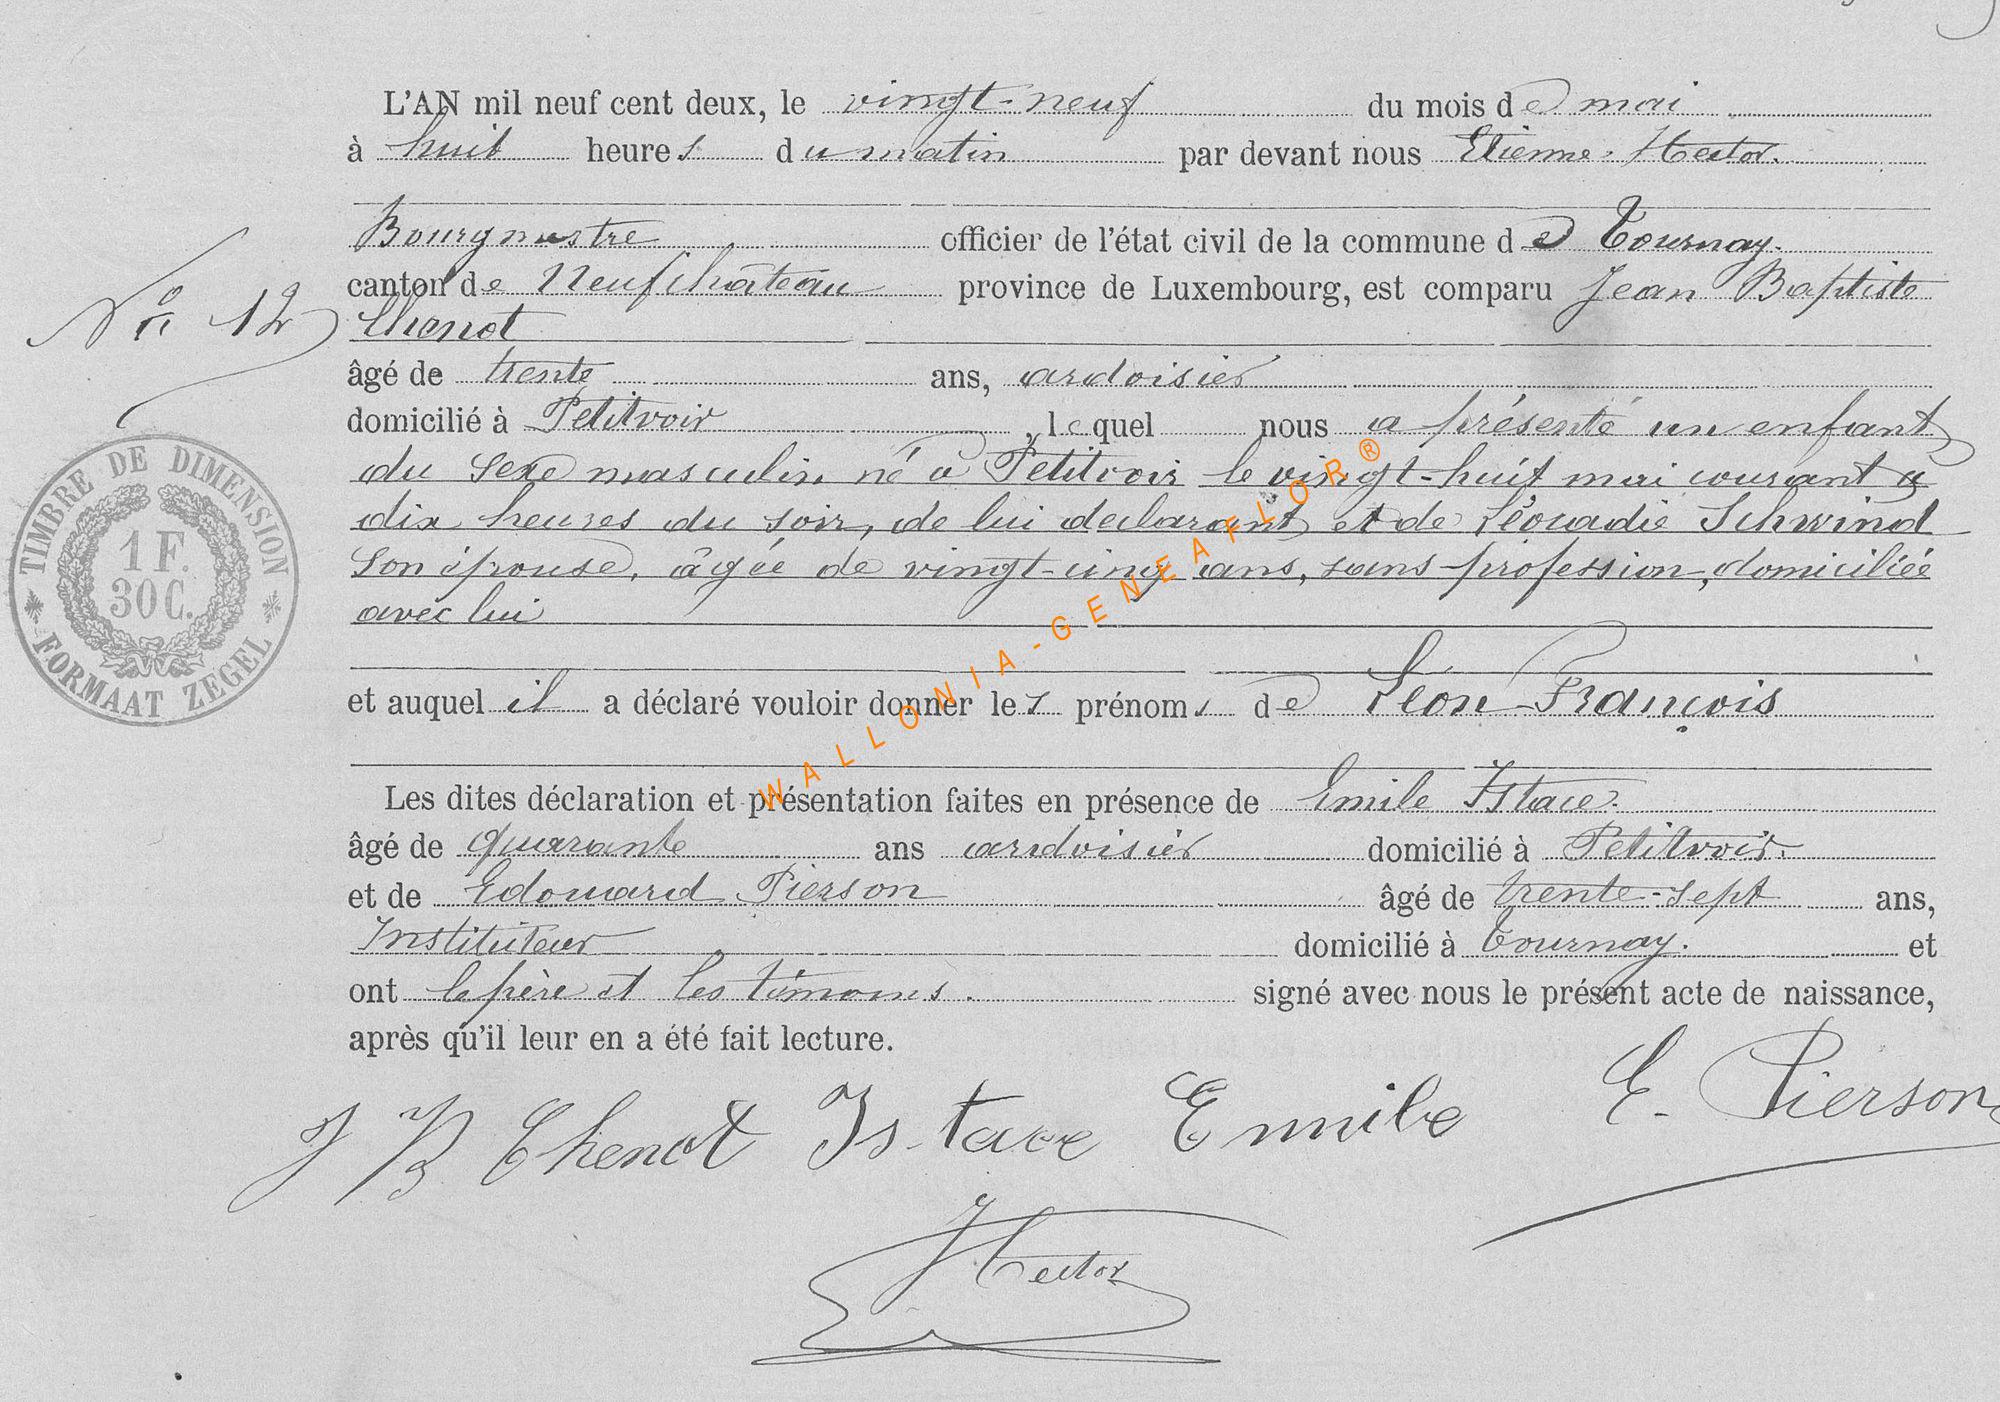 L'AN mil neuf cent deux, le vingt-neuf du mois de mai
à huit heures du matin par devant nous Etienne Hector.
Bourgmestre officier de l'état civil de la commune de Tournay.
canton de Neufchâteau province de Luxembourg, est comparu Jean Baptiste
No 12 Chenot
âgé de trente ans, ardoisier
domicilié à Petitvoir, lequel nous a présenté un enfant
du sexe masculin né à Petitvoir le vingt-huit mai courant à
dix heures du soir, de lui déclarant et de Léocadie Schwind
son épouse, âgée de vingt-cinq ans, sans profession, domiciliée
avec lui
et auquel il a déclaré vouloir donner les prénoms de Léon-François
Les dites déclaration et présentation faites en présence de Emile Istace.
âgé de quarante ans ardoisier domicilié à Petitvoir.
et de Edouard Pierson âgé de trente-sept ans,
Instituteur domicilié à Tournay. et
ont le père et les témoins. signé avec nous le présent acte de naissance,
après qu'il leur en a été fait lecture.
J B Chenot Istace Emile E. Pierson
Hector
TIMBRE DE DIMENSION
1 F.
30 C.
FORMAAT ZEGEL
WALLONIA-GENEAFLOR®